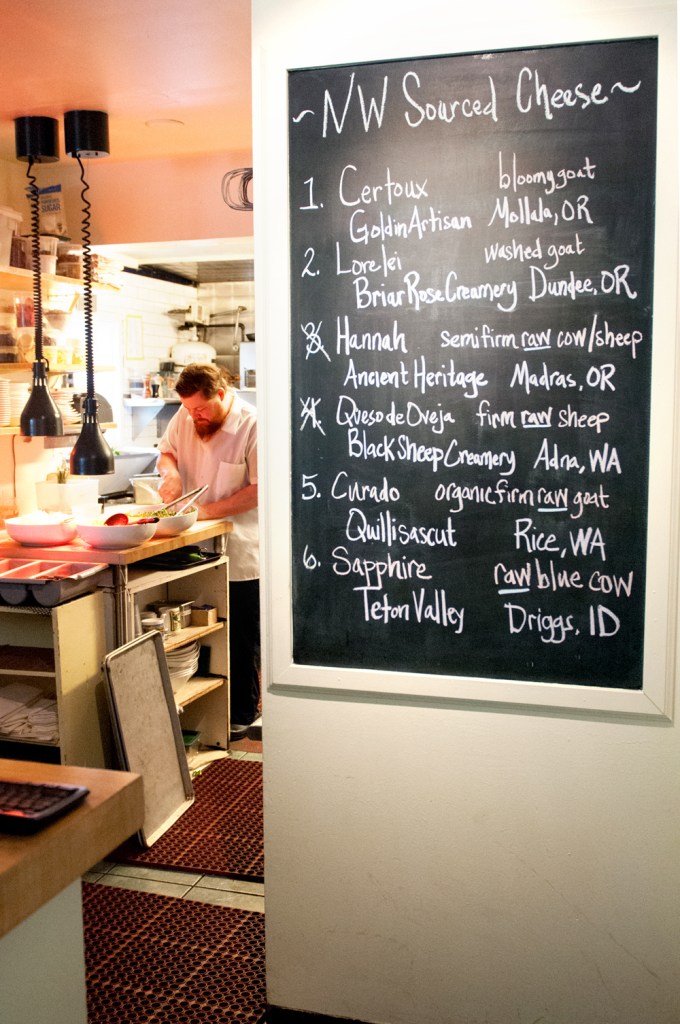 ~NW Sourced Cheese~
1. Certoux bloomy goat
Goldin Artisan Mollala, OR
2. Lorelei washed goat
Briar Rose Creamery Dundee, OR
3. Hannah semifirm raw cow/sheep
Ancient Heritage Madras, OR
4. Queso de Oveja firm raw sheep
Black Sheep Creamery Adna, WA
5. Curado organic firm raw goat
Quillisascut Rice, WA
6. Sapphire raw blue cow
Teton Valley Driggs, ID